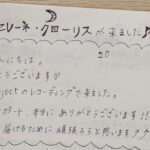 セレーネ・クローリスが来ました♪
20
んにちは。
とうございます♡
ojectのレコーディングで来ました。
ポート、本当に ありがとうございます!!
届けするために頑張ろうと思います